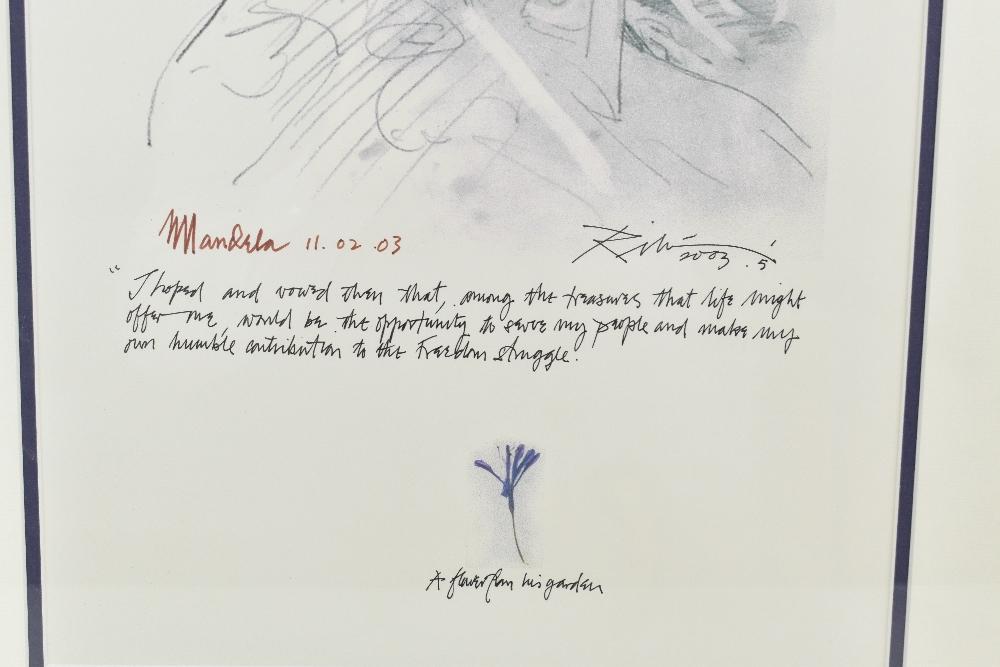 Mandela 11.02.03
2003.5
"I hoped and vowed then that, among the treasures that life might
offer me, would be the opportunity to serve my people and make my
own humble contribution to the Freedom struggle.
A flower from his garden